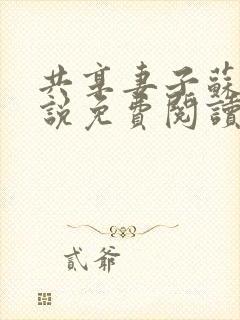 共享妻子蘇
說免費閱讀
貳爺